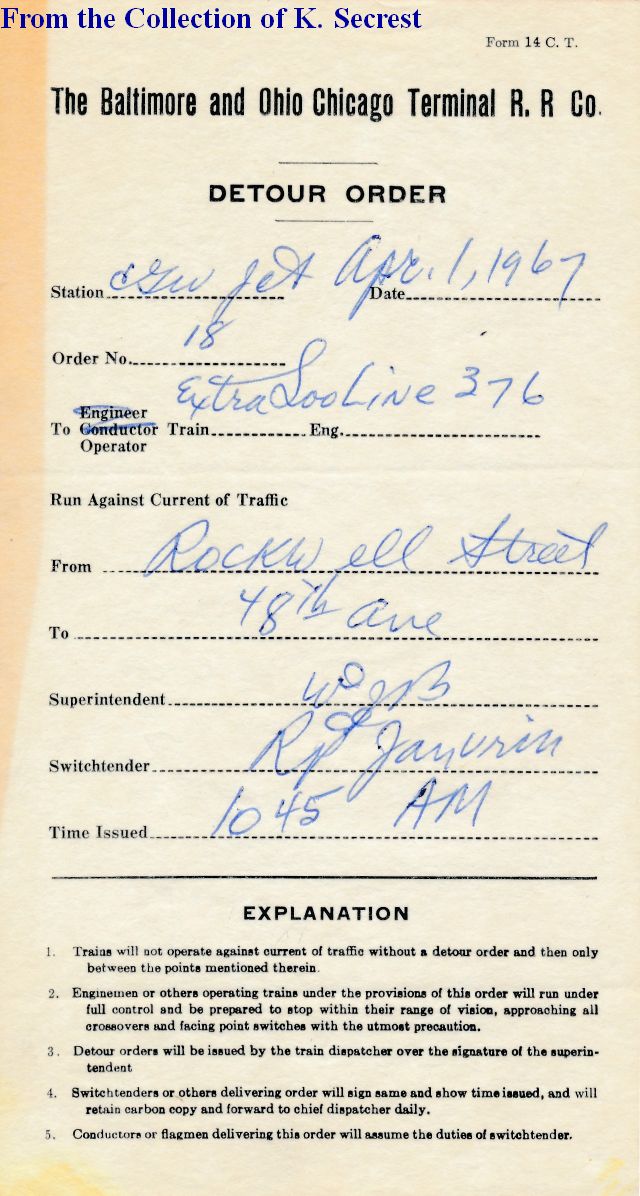 From the Collection of K. Secrest
Form 14 C. T.
The Baltimore and Ohio Chicago Terminal R. R Co.
DETOUR ORDER
Station CGW Jct Date Apr. 1, 1967
Order No. 18
Extra Soo Line 376
Engineer
To Conductor Train Eng.
Operator
Run Against Current of Traffic
From Rockwell Street
To 48th Ave
Superintendent WJB
Switchtender
Time Issued 1045 AM
EXPLANATION
1. Trains will not operate against current of traffic without a detour order and then only
between the points mentioned therein.
2. Enginemen or others operating trains under the provisions of this order will run under
full control and be prepared to stop within their range of vision, approaching all
crossovers and facing point switches with the utmost precaution.
3. Detour orders will be issued by the train dispatcher over the signature of the superin-
tendent
4. Switchtenders or others delivering order will sign same and show time issued, and will
retain carbon copy and forward to chief dispatcher daily.
5. Conductors or flagmen delivering this order will assume the duties of switchtender.